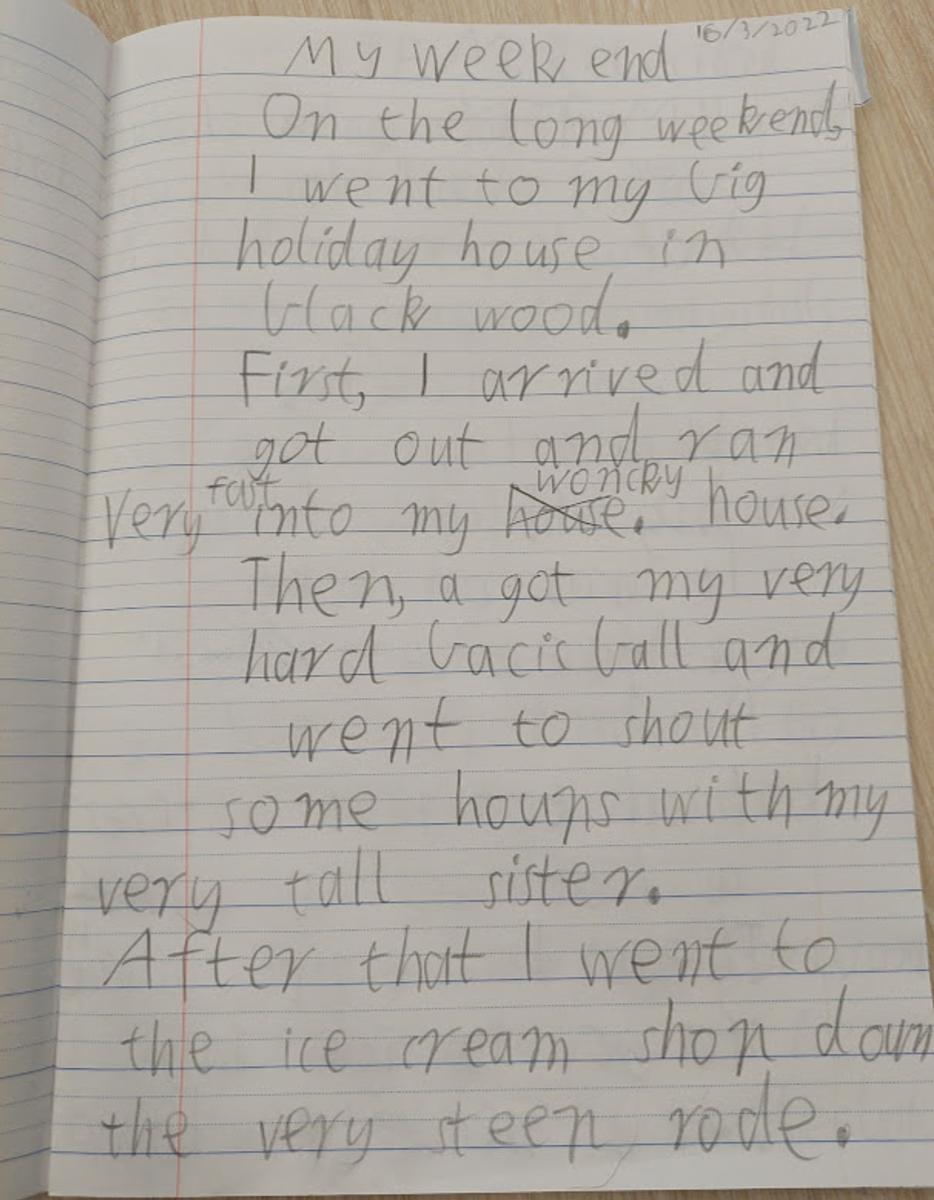 16/3/2022
My week end
On the long weekend,
I went to my big
holiday house in
black wood.
First, I arrived and
got out and ran
woncky
very fast into my house. house.
Then, a got my very
hard bacic ball and
went to shout
some houps with my
very tall sister.
After that I went to
the ice cream shop down
the very steep rode.